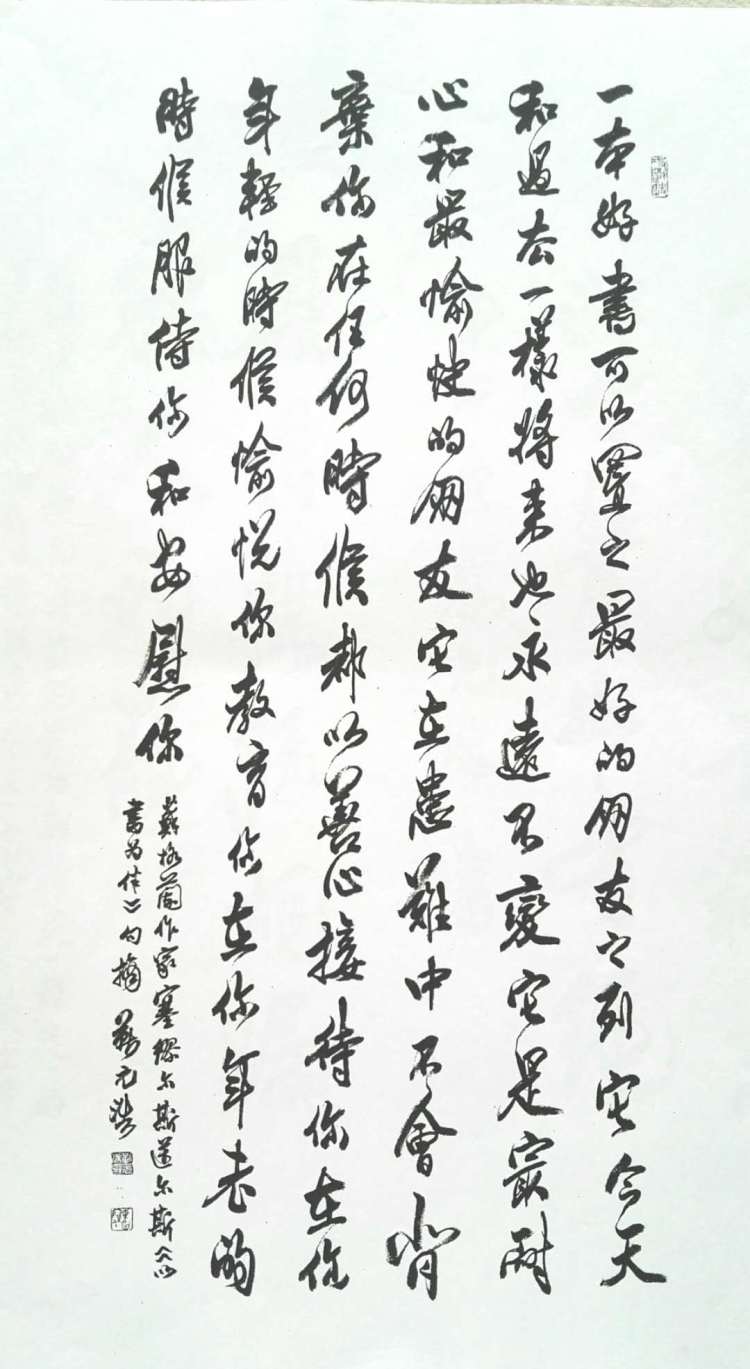 一本好書可以置之最好的朋友之列它今天
和過去一樣將来也永遠不變它是最耐
心和最愉快的朋友它在患難中不會背
棄你在任何時候都以善心接待你在你
年輕的時候愉悦你教育你在你年老的
時候服侍你和安慰你
蘇格蘭作家塞繆尔斯邁尔斯《以
書为伴》句摘